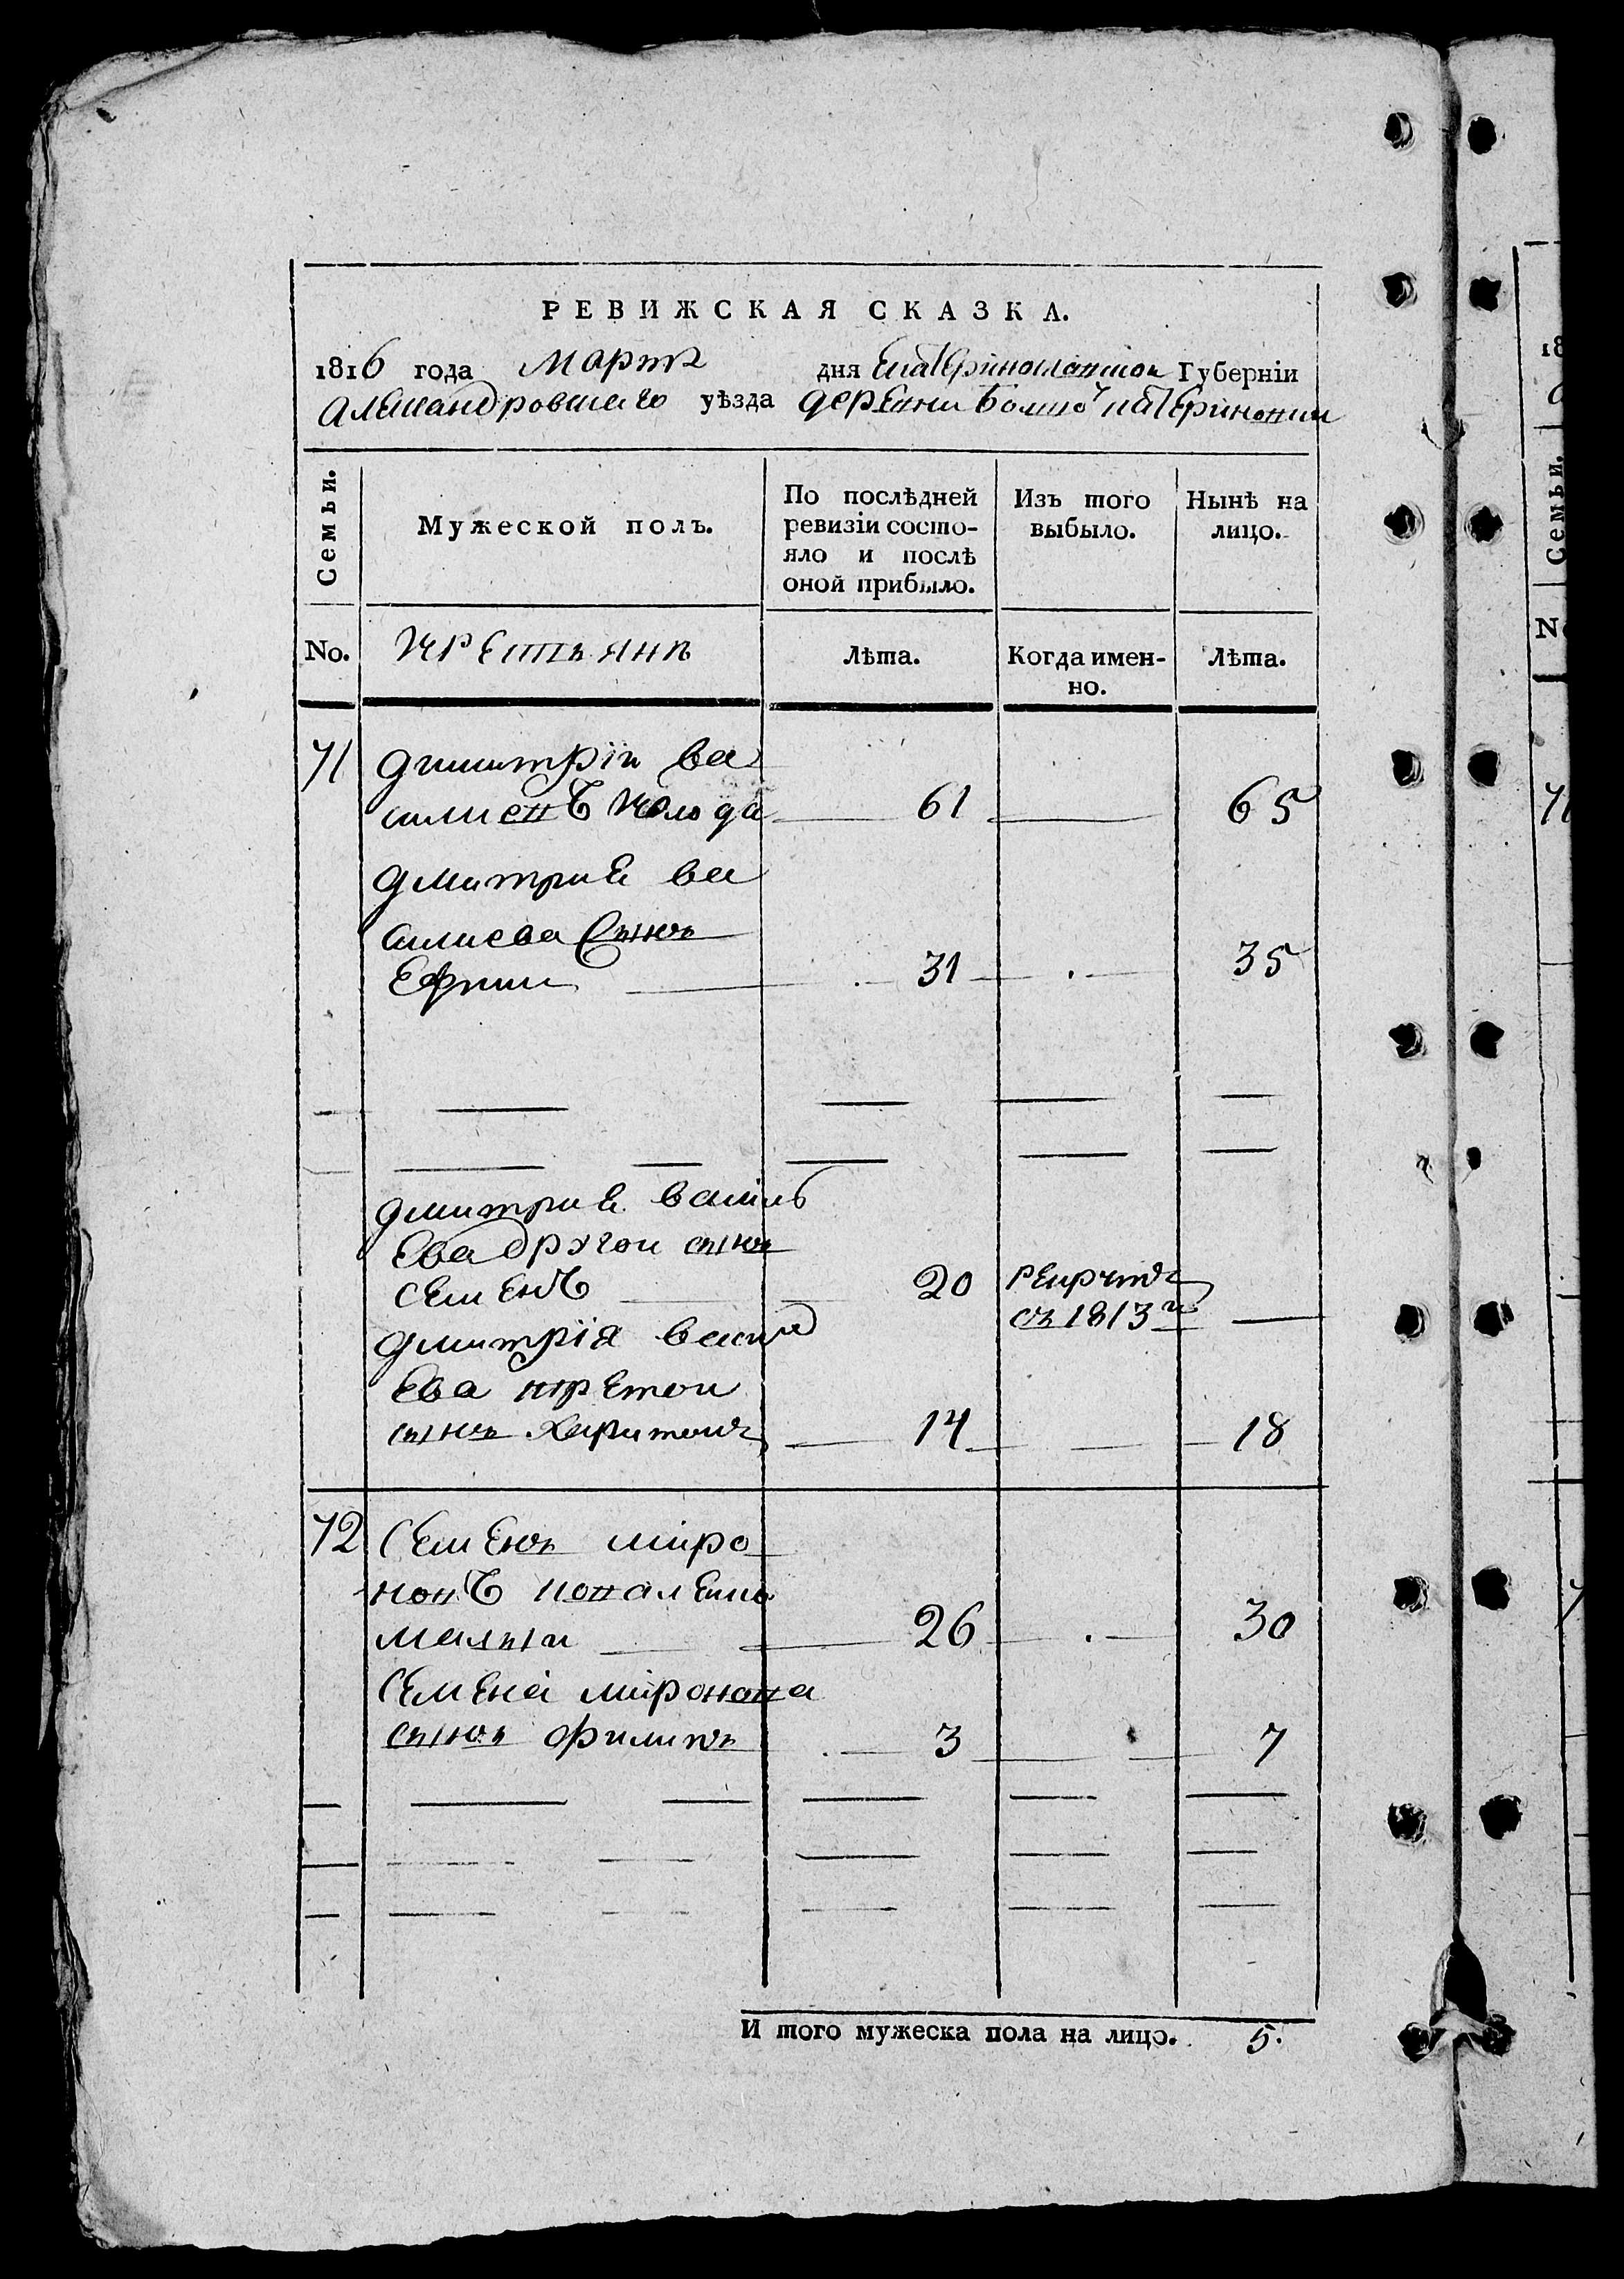 РЕВИЖСКАЯ СКАЗКА.
1816 года Мартъ дня Екатеринославской Губерніи
Александровскаго уѣзда деревни Большой Катериновки
Семьи.
Мужеской полъ.
По послѣдней ревизіи состояло и послѣ оной прибыло.
Изъ того выбыло.
Нынѣ на лицо.
No. Крестьянъ Лѣта. Когда именно. Лѣта.
71 Димитрій Ва
сильевъ Колода 61 65
Дмитрие Ва
силиева Сынъ
Ефим 31 35
Дмитрие Василь
Ева другои сынъ
Семенъ 20 рекрутъ
съ 1813г
Дмитрія Васил
Ева третои
сынъ Харитонъ 14 18
72 Семенъ миро
новъ
малыи 26 30
Семена миронова
сынъ Филипъ 3 7
И того мужеска пола на лицо. 5.
18
Семьи.